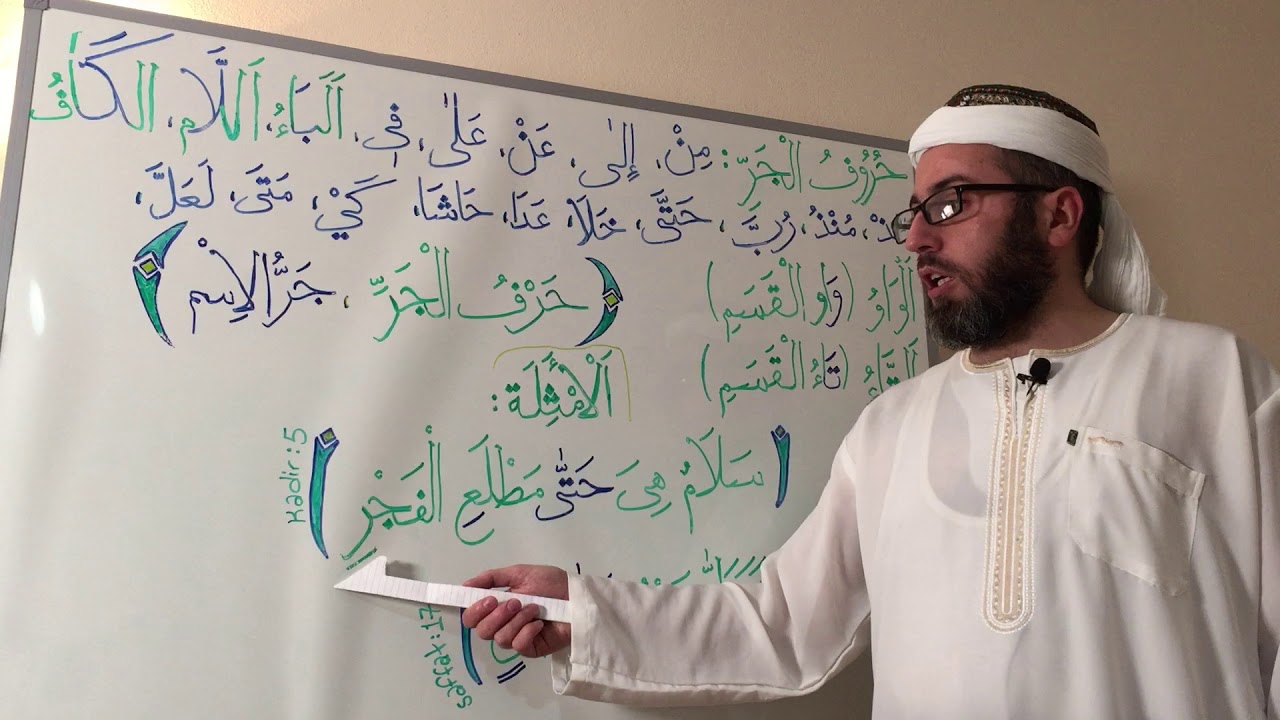 حُرُوفُ الْجَرِّ: مِنْ، إِلىٰ، عَنْ، عَلىٰ، فِى، اَلْبَاءُ، اَللَّام، الكَافُ
مُنْذُ، رُبَّ، حَتَّى، خَلَا، عَدَا، حَاشَا، كَيْ، مَتَى، لَعَلَّ،
اَلْوَاوُ (وَاو الْقَسَمِ)
(حَرْفُ الْجَرِّ، جَرُّ الاِسْم)
اَلتَّاءُ (تَاءُ الْقَسَمِ)
اَلْأَمْثِلَة:
(سَلَامٌ هِىَ حَتّٰى مَطْلَعِ الْفَجْرِ)
Kadir:5